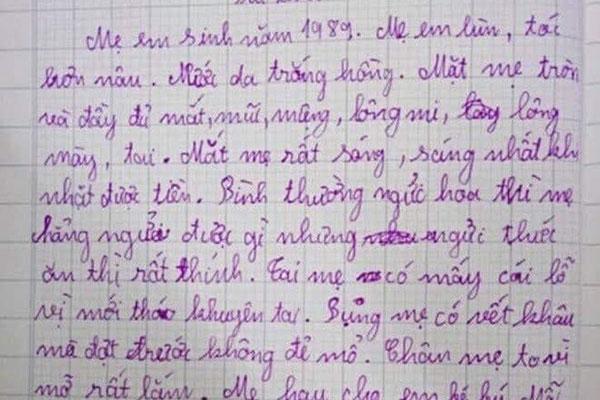 Mẹ em sinh năm 1989. Mẹ em lùn, tóc
hơn nâu. Nước da trắng hồng. Mặt mẹ tròn
và đầy đủ mắt, mũi, miệng, lông mi, lông
mày, tai. Mắt mẹ rất sáng, sáng nhất khi
nhặt được tiền. Bình thường ngửi hoa thì mẹ
chẳng ngửi được gì nhưng ngửi thức
ăn thì rất thính. Tai mẹ có mấy cái lỗ
vì mới tháo khuyên tai. Bụng mẹ có vết khâu
mà dạt trước không đẻ mổ. Chân mẹ to vì
mỡ rất lắm. Mẹ hay cho em bé bú. Mỗi